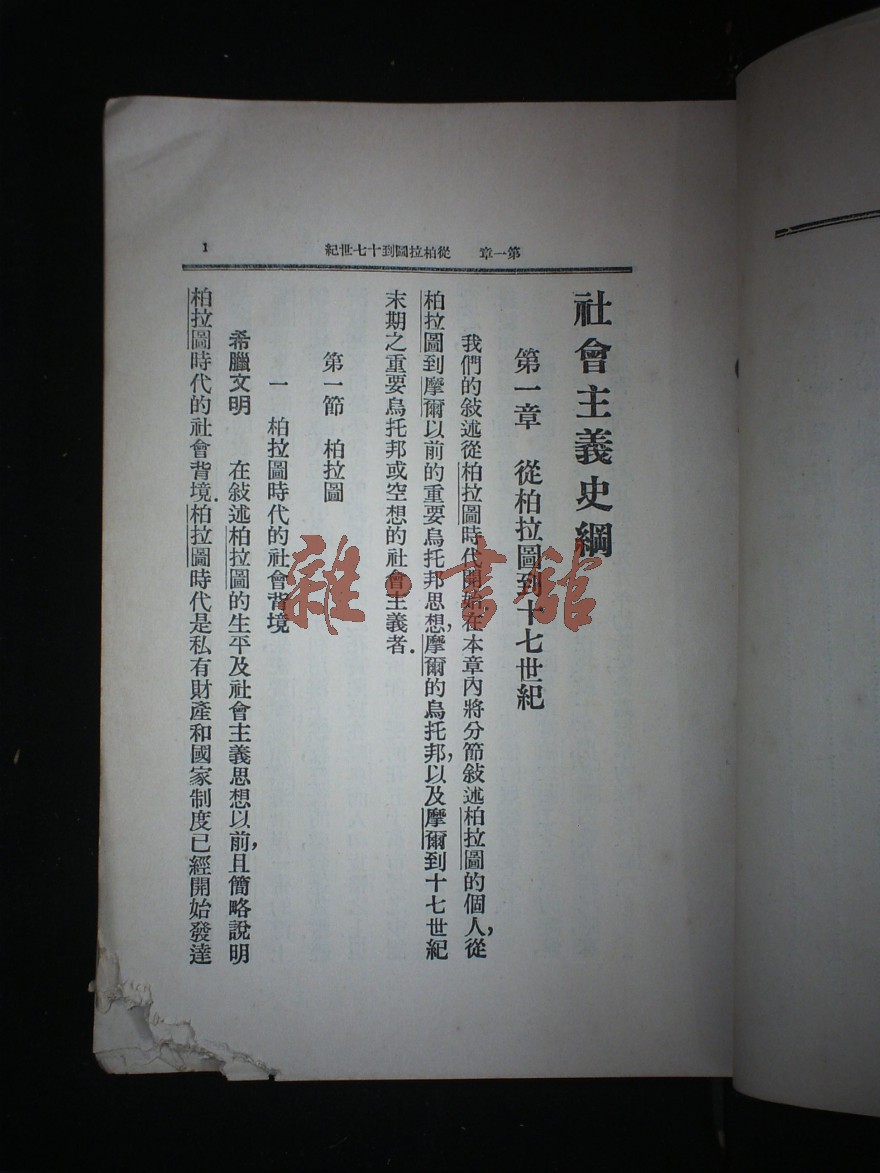 第一章　從柏拉圖到十七世紀
1
社會主義史綱
第一章　從柏拉圖到十七世紀
我們的敍述從柏拉圖時代開始在本章內將分節敍述柏拉圖的個人，從
柏拉圖到摩爾以前的重要烏托邦思想，摩爾的烏托邦，以及摩爾到十七世紀
末期之重要烏托邦或空想的社會主義者．
第一節　柏拉圖
一　柏拉圖時代的社會背境
希臘文明　在敍述柏拉圖的生平及社會主義思想以前，且簡略說明
柏拉圖時代的社會背境．柏拉圖時代是私有財產和國家制度已經開始發達
雜·書舘